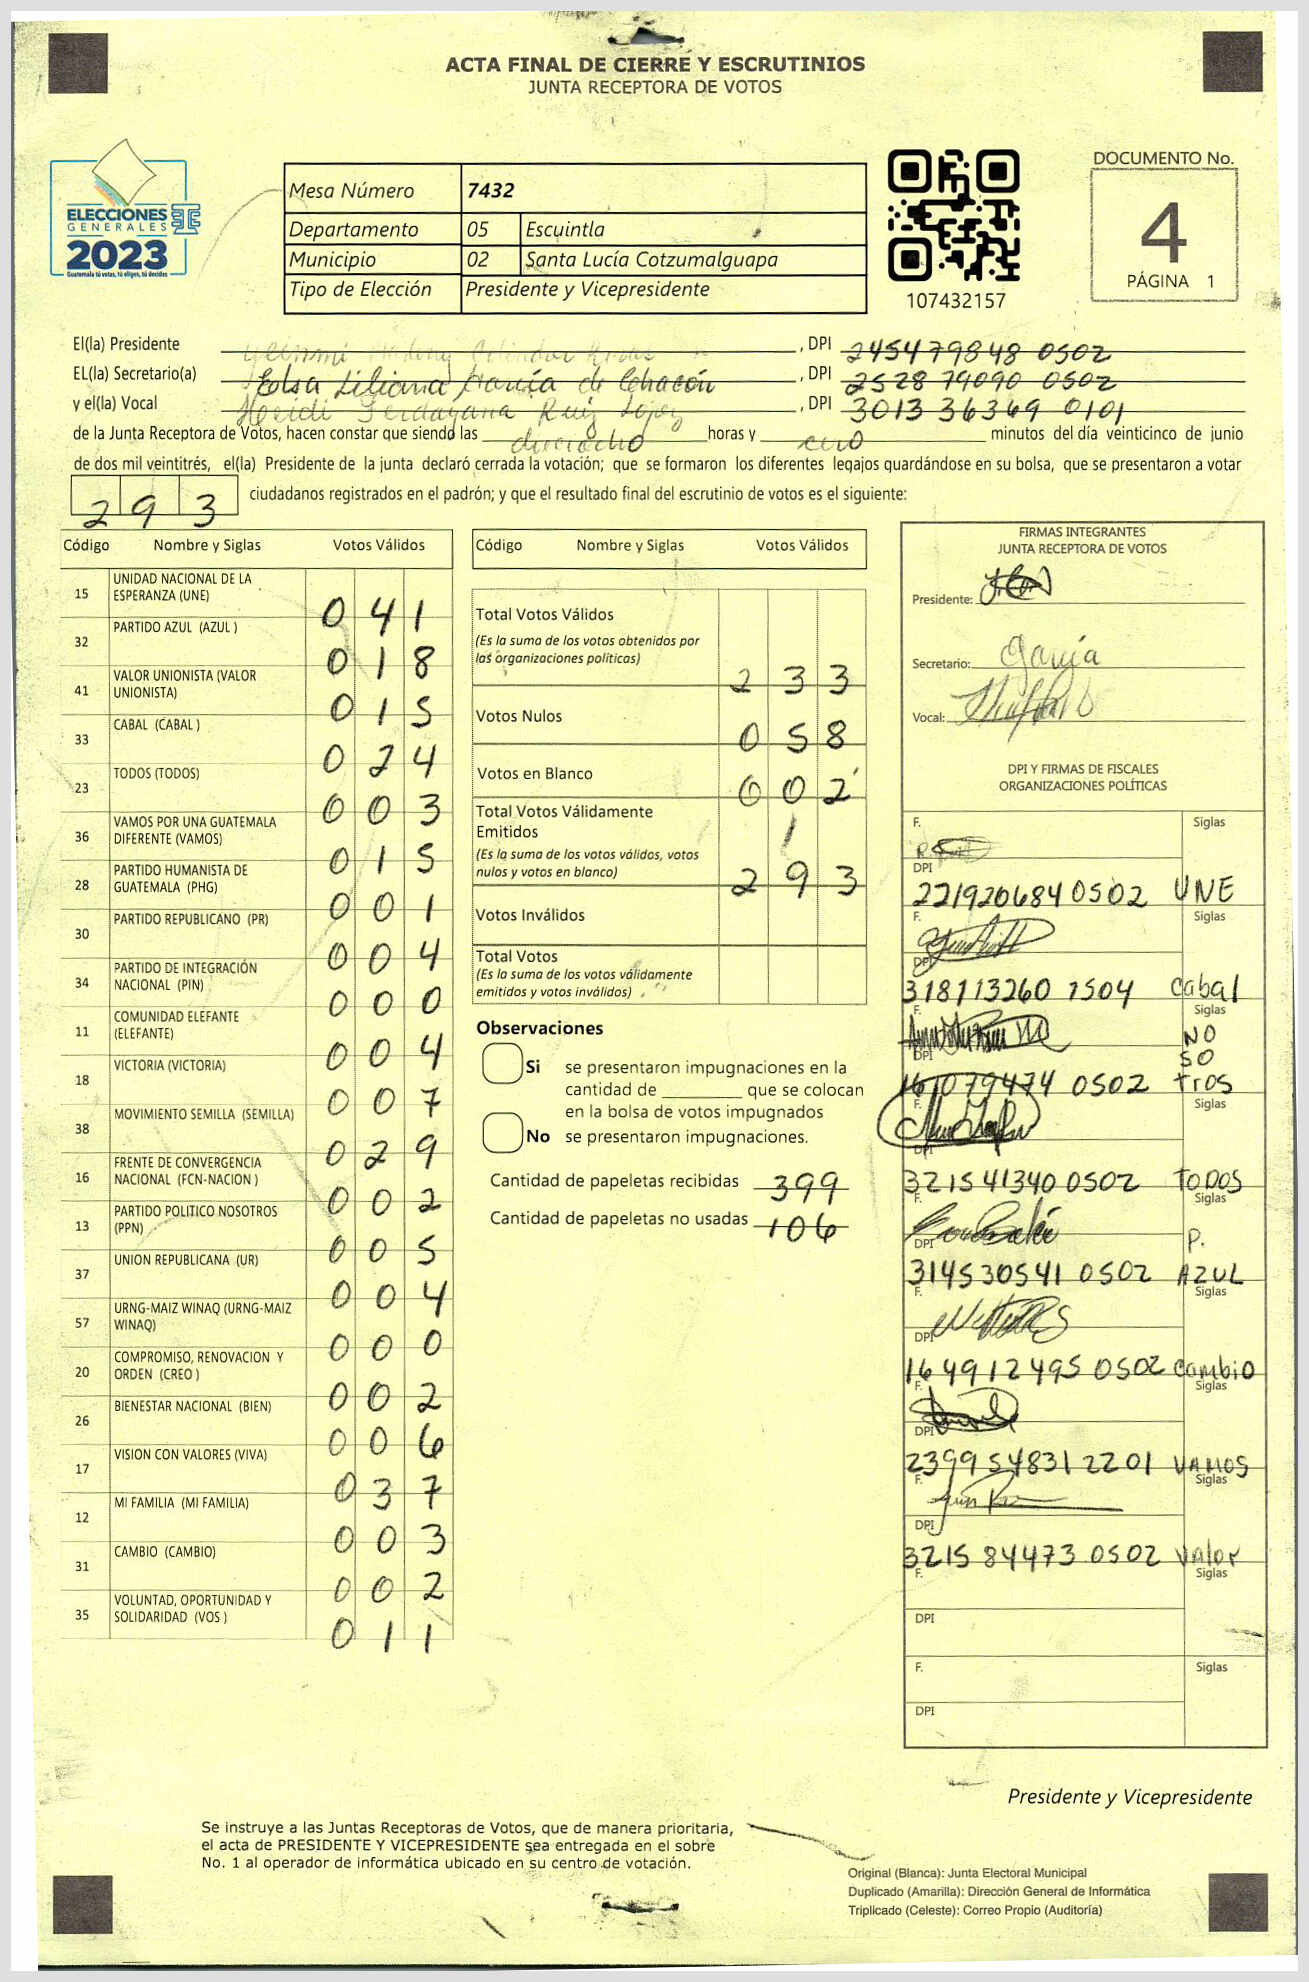 ACTA FINAL DE CIERRE Y ESCRUTINIOS
JUNTA RECEPTORA DE VOTOS
ELECCIONES
GENERALES
2023
Guatemala tú votas, tú eliges, tú decides
Mesa Número 7432
Departamento 05 Escuintla
Municipio 02 Santa Lucía Cotzumalguapa
Tipo de Elección Presidente y Vicepresidente
107432157
DOCUMENTO No.
4
PÁGINA 1
El(la) Presidente , DPI 245479848 0502
EL(la) Secretario(a) Elsa Liliana García de Chacón , DPI 2528 79090 0502
y el(la) Vocal Heidi Ruiz , DPI 3013 36369 0101
de la Junta Receptora de Votos, hacen constar que siendo las dieciocho horas y cero minutos del día veinticinco de junio
de dos mil veintitrés, el(la) Presidente de la junta declaró cerrada la votación; que se formaron los diferentes legajos quardándose en su bolsa, que se presentaron a votar
293 ciudadanos registrados en el padrón; y que el resultado final del escrutinio de votos es el siguiente:
Código Nombre y Siglas Votos Válidos
15 UNIDAD NACIONAL DE LA ESPERANZA (UNE) 041
32 PARTIDO AZUL (AZUL ) 018
41 VALOR UNIONISTA (VALOR UNIONISTA) 015
33 CABAL (CABAL ) 024
23 TODOS (TODOS) 003
36 VAMOS POR UNA GUATEMALA DIFERENTE (VAMOS) 015
28 PARTIDO HUMANISTA DE GUATEMALA (PHG) 001
30 PARTIDO REPUBLICANO (PR) 004
34 PARTIDO DE INTEGRACIÓN NACIONAL (PIN) 000
11 COMUNIDAD ELEFANTE (ELEFANTE) 004
18 VICTORIA (VICTORIA) 007
38 MOVIMIENTO SEMILLA (SEMILLA) 029
16 FRENTE DE CONVERGENCIA NACIONAL (FCN-NACION ) 002
13 PARTIDO POLITICO NOSOTROS (PPN) 005
37 UNION REPUBLICANA (UR) 004
57 URNG-MAIZ WINAQ (URNG-MAIZ WINAQ) 000
20 COMPROMISO, RENOVACION Y ORDEN (CREO ) 002
26 BIENESTAR NACIONAL (BIEN) 006
17 VISION CON VALORES (VIVA) 037
12 MI FAMILIA (MI FAMILIA) 003
31 CAMBIO (CAMBIO) 002
35 VOLUNTAD, OPORTUNIDAD Y SOLIDARIDAD (VOS ) 011
Código Nombre y Siglas Votos Válidos
Total Votos Válidos
(Es la suma de los votos obtenidos por
las organizaciones políticas)
233
Votos Nulos 058
Votos en Blanco 002
Total Votos Válidamente
Emitidos
(Es la suma de los votos válidos, votos
nulos y votos en blanco)
293
Votos Inválidos
Total Votos
(Es la suma de los votos válidamente
emitidos y votos inválidos)
Observaciones
Si se presentaron impugnaciones en la
cantidad de ________ que se colocan
en la bolsa de votos impugnados
No se presentaron impugnaciones.
Cantidad de papeletas recibidas 399
Cantidad de papeletas no usadas 106
FIRMAS INTEGRANTES
JUNTA RECEPTORA DE VOTOS
Presidente:
Secretario: García
Vocal:
DPI Y FIRMAS DE FISCALES
ORGANIZACIONES POLÍTICAS
F. Siglas
DPI
221920684 0502 UNE
F. Siglas
DPI
318113260 1504 Cabal
F. Siglas
DPI
161079474 0502 NO SO tros
F. Siglas
DPI
3215 41340 0502 TODOS
F. Siglas
DPI
314530541 0502 P. AZUL
F. Siglas
DPI
164912495 0502 Cambio
F. Siglas
DPI
2399 54831 2201 VAMOS
F. Siglas
DPI
3215 84473 0502 Valor
F. Siglas
DPI
F. Siglas
DPI
Presidente y Vicepresidente
Se instruye a las Juntas Receptoras de Votos, que de manera prioritaria,
el acta de PRESIDENTE Y VICEPRESIDENTE sea entregada en el sobre
No. 1 al operador de informática ubicado en su centro de votación.
Original (Blanca): Junta Electoral Municipal
Duplicado (Amarilla): Dirección General de Informática
Triplicado (Celeste): Correo Propio (Auditoría)